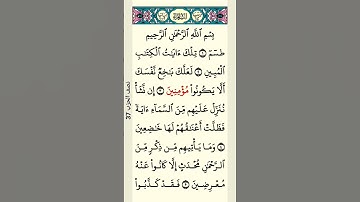 بِسْمِ ٱللَّهِ ٱلرَّحْمَٰنِ ٱلرَّحِيمِ
طسٓمٓ ۝ تِلْكَ ءَايَٰتُ ٱلْكِتَٰبِ
ٱلْمُبِينِ ۝ لَعَلَّكَ بَٰخِعٌ نَّفْسَكَ
أَلَّا يَكُونُوا۟ مُؤْمِنِينَ ۝ إِن نَّشَأْ
نُنَزِّلْ عَلَيْهِم مِّنَ ٱلسَّمَآءِ ءَايَةً
فَظَلَّتْ أَعْنَٰقُهُمْ لَهَا خَٰضِعِينَ
۝ وَمَا يَأْتِيهِم مِّن ذِكْرٍ مِّنَ
ٱلرَّحْمَٰنِ مُحْدَثٍ إِلَّا كَانُوا۟ عَنْهُ
مُعْرِضِينَ ۝ فَقَدْ كَذَّبُوا۟
نصف الحزب 37